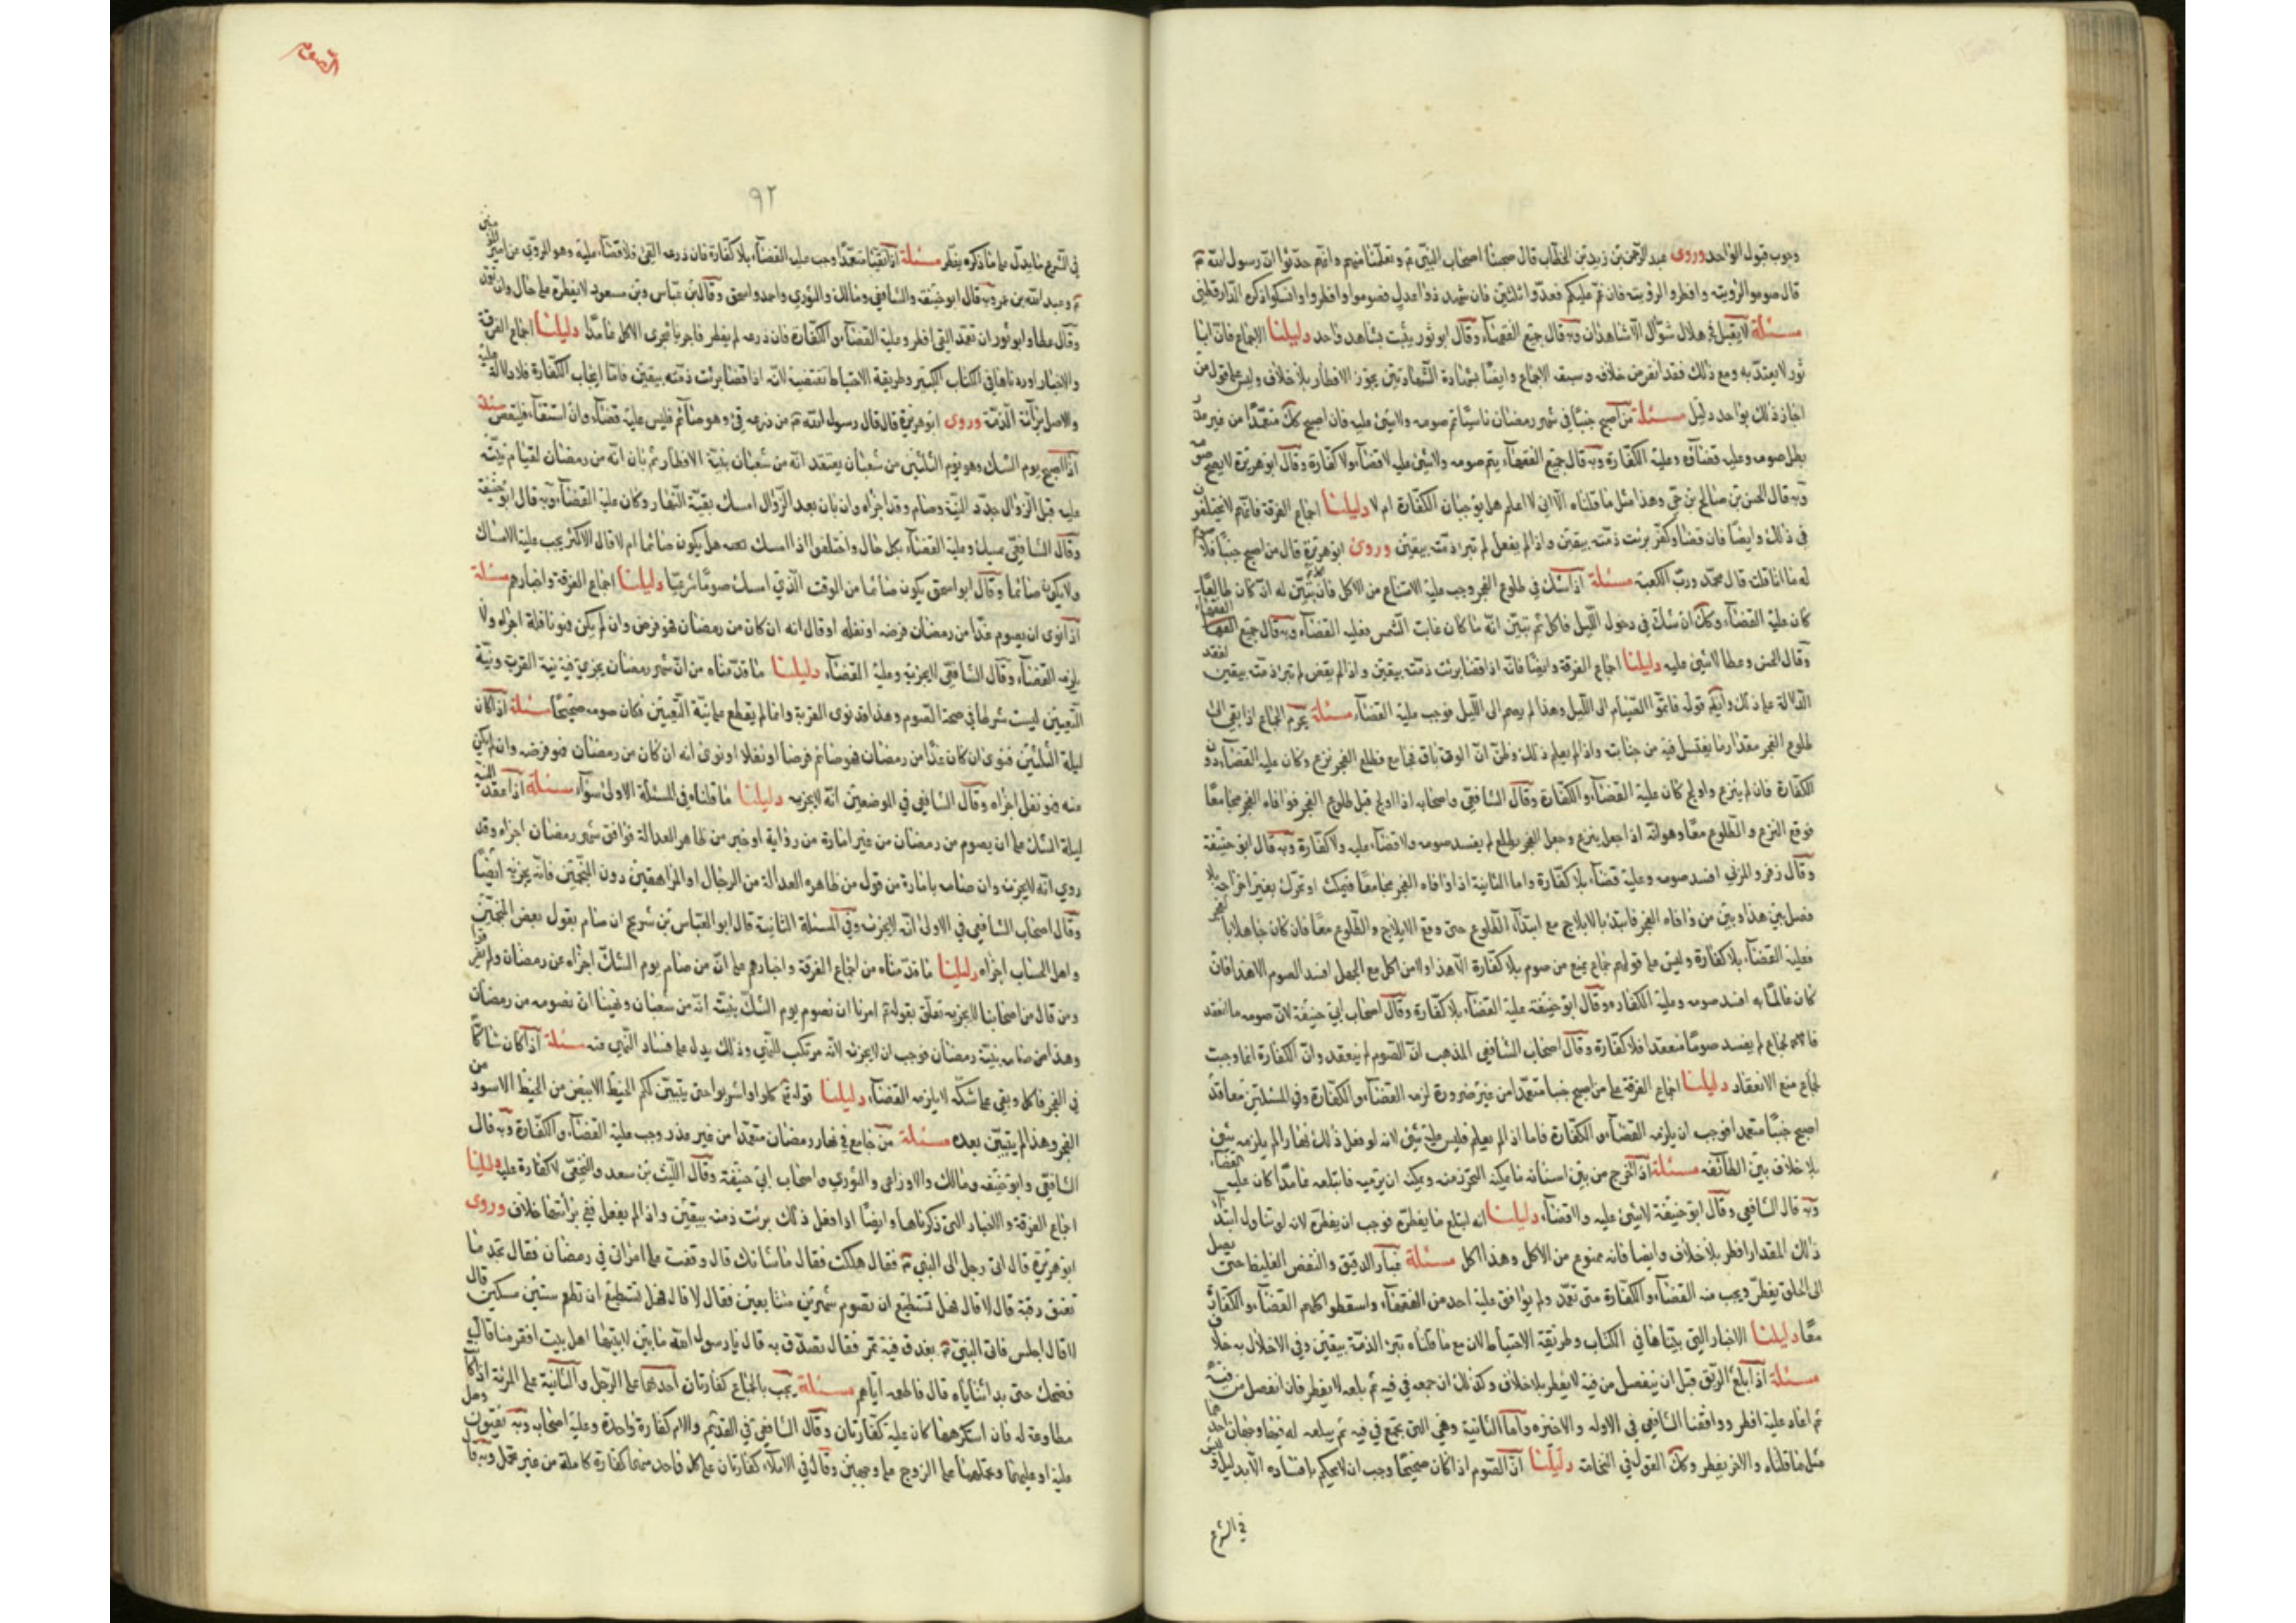 وجوب قبول الواحد وروى عبد الرحمن بن زيد بن الخطاب قال صحبنا اصحاب النبي و تعلمنا منهم وانهم حدثوا ان رسول الله
قال صوموا لرؤيته وافطروا لرؤيته فان غم عليكم فعدوا ثلثين فان شهد ذوا عدل فصوموا وافطروا وانسكوا ذكره الدارقطني
مسئلة لا يقبل في هلال شوال الا شاهدان وبه قال جميع الفقهاء وقال ابو ثور يثبت بشاهد واحد دليلنا الاجماع فان ابا
ثور لا يعتد به ومع ذلك فقد انقرض خلافه وسبقه الاجماع وايضا بشهادة الشاهدين يجوز الافطار بلا خلاف وليس على قول من
اجاز ذلك بواحد دليل مسئلة من اصبح جنبا في شهر رمضان ناسيا تم صومه ولا شيء عليه فان اصبح كك متعمدا من غير عذر
بطل صومه وعليه قضاؤه وعليه الكفارة وبه قال جميع الفقهاء يتم صومه ولا شيء عليه لا قضاء ولا كفارة وقال ابو هريرة لا يصح صومه
وبه قال الحسن بن صالح بن حي وهذا مثل ما قلناه الا اني لا اعلم هل يوجبان الكفارة ام لا دليلنا اجماع الفرقة فانهم لا يختلفون
في ذلك وايضا فان قضا وكفر برئت ذمته بيقين واذا لم يفعل لم تبرا ذمته بيقين وروى ابو هريرة قال من اصبح جنبا فلا صوم
له ما انا قلت قال محمد ورب الكعبة مسئلة اذا شك في طلوع الفجر وجب عليه الامتناع من الاكل فان تبين له انه كان طالعا
كان عليه القضاء وكك ان شك في دخول الليل فاكل ثم تبين انه ما كان غابت الشمس فعليه القضاء وبه قال جميع الفقهاء
وقال الحسن وعطا لا شيء عليه دليلنا اجماع الفرقة وايضا فانه اذا قضا برئت ذمته بيقين واذا لم يقض لم تبرا ذمته بيقين
الدلالة على ذلك وايكم قوله فاتموا الصيام الى الليل وهذا لم يصم الى الليل فوجب عليه القضاء مسئلة يحرم الجماع اذا بقي الى
طلوع الفجر مقدار ما يغتسل فيه من جنابته واذا لم يعلم ذلك وظن ان الوقت باق فجامع فطلع الفجر نزع وكان عليه القضاء دون
الكفارة فان لم ينزع واولج كان عليه القضاء والكفارة وقال الشافعي واصحابه اذا اولج قبل طلوع الفجر فوافاه الفجر مجامعا
فوقع النزع والطلوع معا وهو انه اذا جعل ينزع وجعل الفجر يطلع لم يفسد صومه ولا قضاء عليه ولا كفارة وبه قال ابو حنيفة
وقال زفر والمزني افسد صومه وعليه قضاء بلا كفارة واما الثانية اذا وافاه الفجر مجامعا فتمكث او تحرك بغير اخراجه فلا
فصل بين هذا وبين من وافاه الفجر فابتدا بالايلاج مع ابتداء الطلوع حتى وقع الايلاج والطلوع معا فان كان جاهلا بالفجر
فعليه القضاء بلا كفارة وليس على قولهم جماع يمنع من صوم بلا كفارة الا هذا ولا من اكل مع الجهل افسد الصوم الا هذا فان
كان عالما به افسد صومه وعليه الكفارة وقال ابو حنيفة عليه القضاء بلا كفارة وقال اصحاب ابي حنيفة لان صومه ما انعقد
جماع لم يفسد صوما منعقدا فلا كفارة وقال اصحاب الشافعي المذهب ان الصوم لم ينعقد وان الكفارة انما وجبت
لجماع منع الانعقاد دليلنا اجماع الفرقة على من اصبح جنبا متعمدا من غير ضرورة لزمه القضاء والكفارة وفي المسئلتين معا قد
اصبح جنبا متعمدا فوجب ان يلزمه القضاء والكفارة فاما اذا لم يعلم فليس عليه شيء لانه لو فعل ذلك نهارا لم يلزمه شيء
بلا خلاف بين الطائفه مسئلة اذا خرج من بين اسنانه ما يمكنه التحرز منه ويمكنه ان يرميه فابتلعه عامدا كان عليه القضاء
وبه قال الشافعي وقال ابو حنيفة لا شيء عليه ولا قضاء دليلنا انه ابتلع ما يفطره فوجب ان يفطره لانه لو تناول ابتداء
ذلك المقدار افطر بلا خلاف وايضا فانه ممنوع من الاكل وهذا اكل مسئلة غبار الدقيق والنفض الغليظ حتى يصل
الى الحلق يفطر ويجب منه القضاء والكفارة متى تعمد ولم يوافق عليه احد من الفقهاء واسقطوا كلهم القضاء والكفارة
معا دليلنا الاخبار التي بيناها في الكتاب وطريقة الاحتياط لان مع ما قلناه تبرئ الذمة بيقين وفي الاخلال به خلاف
مسئلة اذا بلع الريق قبل ان ينفصل من فيه لا يفطر بلا خلاف وكذلك ان جمعه في فيه ثم بلعه لا يفطر فان انفصل من فيه
ثم اعاد عليه افطر ووافقنا الشافعي في الاوله والاخيره واما الثانية وهي التي يجمع في فيه ثم يبلعه له فيها وجهان احدهما
مثل ما قلناه والاخر يفطر وكك القول في النخامة دليلنا ان الصوم اذا كان صحيحا وجب ان لا يحكم بافساده الا بدليل وليس
في الشرع
الصوم
٩٢
في الشرع ما يدل على ما ذكره يفطر مسئلة اذا تقيا متعمدا وجب عليه القضاء بلا كفارة فان ذرعه القئ فلا قضاء عليه وهو المروي عن امير المؤمنين
وعبد الله بن عمر وبه قال ابو حنيفة والشافعي ومالك والثوري واحمد واسحق وقال بن عباس وبن مسعود لا يفطره على حال وان تعمد
وقال عطا وابو ثور ان تعمد القئ افطر وعليه القضاء والكفارة فان ذرعه لم يفطر فاجريا مجرى الاكل عامدا دليلنا اجماع الفرقة
والاخبار اوردناها في الكتاب الكبير وطريقة الاحتياط تقتضيه لانه اذا قضا برئت ذمته بيقين فاما ايجاب الكفارة فلا دلالة عليه
والاصل برائة الذمة وروى ابو هريرة قال قال رسول الله من ذرعه قئ وهو صائم فليس عليه قضاء وان استقاء فليقض مسئلة
اذا اصبح يوم الشك وهو يوم الثلثين من شعبان يعتقد انه من شعبان بنية الافطار ثم بان انه من رمضان لقيام بينة
عليه قبل الزوال جدد النية وصام وقد اجزاه وان بان بعد الزوال امسك بقية النهار وكان عليه القضاء وبه قال ابو حنيفة
وقال الشافعي يمسك وعليه القضاء بكل حال واختلفوا اذا امسك هل يكون صائما ام لا قال الاكثر يجب عليه الامساك
ولا يكون صائما وقال ابو اسحق يكون صائما من الوقت الذي امسك صوما شرعيا دليلنا اجماع الفرقة واخبارهم مسئلة
اذا نوى ان يصوم غدا من رمضان فرضه او نفله او قال انه ان كان من رمضان فهو فرض وان لم يكن فهو نافلة اجزاه ولا
يلزمه القضاء وقال الشافعي لا يجزيه وعليه القضاء دليلنا ما قدمناه من ان شهر رمضان يجزي فيه نية القربة ونية
التعيين ليست شرطا في صحة الصوم وهذا قد نوى القربة وانما لم يقطع على نية التعيين فكان صومه صحيحا مسئلة اذا كان
ليلة الثلثين فنوى ان كان غدا من رمضان فهو صائم فرضا او نفلا او نوى انه ان كان من رمضان فهو فرضه وان لم يكن
منه فهو نفل اجزاه وقال الشافعي في الموضعين انه لا يجزيه دليلنا ما قلناه في المسئلة الاولى سواء مسئلة اذا عقد النية
ليلة الشك على ان يصوم من رمضان من غير امارة من رواية او خبر من ظاهر العدالة فوافق شهر رمضان اجزاه وقد
روي انه لا يجزيه وان صام بامارة من قول من ظاهره العدالة من الرجال او المراهقين دون المنجمين فانه يجزيه ايضا
وقال اصحاب الشافعي في الاولى انه لا يجزيه وفي المسئلة الثانية قال ابو العباس بن شريح ان صام بقول بعض المنجمين
واهل الحساب اجزاه دليلنا ما قدمناه من اجماع الفرقة واخبارهم على ان من صام يوم الشك اجزاه عن رمضان ولم يفرقوا
ومن قال من اصحابنا لا يجزيه تعلق بقوله امرنا ان نصوم يوم الشك بنية انه من شعبان ونهينا ان نصومه من رمضان
وهذا من صام بنية رمضان فوجب ان لا يجزيه لانه مرتكب للنهي وذلك يدل على فساد النهي عنه مسئلة اذا كان شاكا
في الفجر فاكل وبقي على شكه لا يلزمه القضاء دليلنا قوله تع كلوا واشربوا حتى يتبين لكم الخيط الابيض من الخيط الاسود من
الفجر وهذا لم يتبين بعده مسئلة من جامع في نهار رمضان متعمدا من غير عذر وجب عليه القضاء والكفارة وبه قال
الشافعي وابو حنيفه ومالك والاوزاعي والثوري واصحاب ابي حنيفة وقال الليث بن سعد والنخعي لا كفارة عليه دليلنا
اجماع الفرقة والاخبار التي ذكرناها وايضا اذا فعل ذلك برئت ذمته بيقين واذا لم يفعل ففي برائتها خلاف وروى
ابو هريرة قال اتى رجل الى النبي فقال هلكت فقال ما شانك قال وقعت على امراتي في رمضان فقال تجد ما
تعتق رقبة قال لا قال هل تستطيع ان تصوم شهرين متتابعين فقال لا قال فهل تستطيع ان تطعم ستين مسكينا قال
لا قال اجلس فاتى النبي بعذق فيه تمر فقال تصدق به قال يا رسول الله ما بين لابتيها اهل بيت افقر منا قال
فضحك حتى بدا ثناياه قال فاطعمه اياهم مسئلة يجب بالجماع كفارتان احدهما على الرجل والثانية على المرئة اذا كانت
مطاوعة له فان استكرهها كان عليه كفارتان وقال الشافعي في القديم والام كفارة واحدة وعليه اصحابه وبه يفتون وهل
عليه او عليهما وتحملهما على الزوج على وجهين وقال في الاملاء كفارتان على كل واحد منهما كفارة كاملة من غير تحمل وبه قال